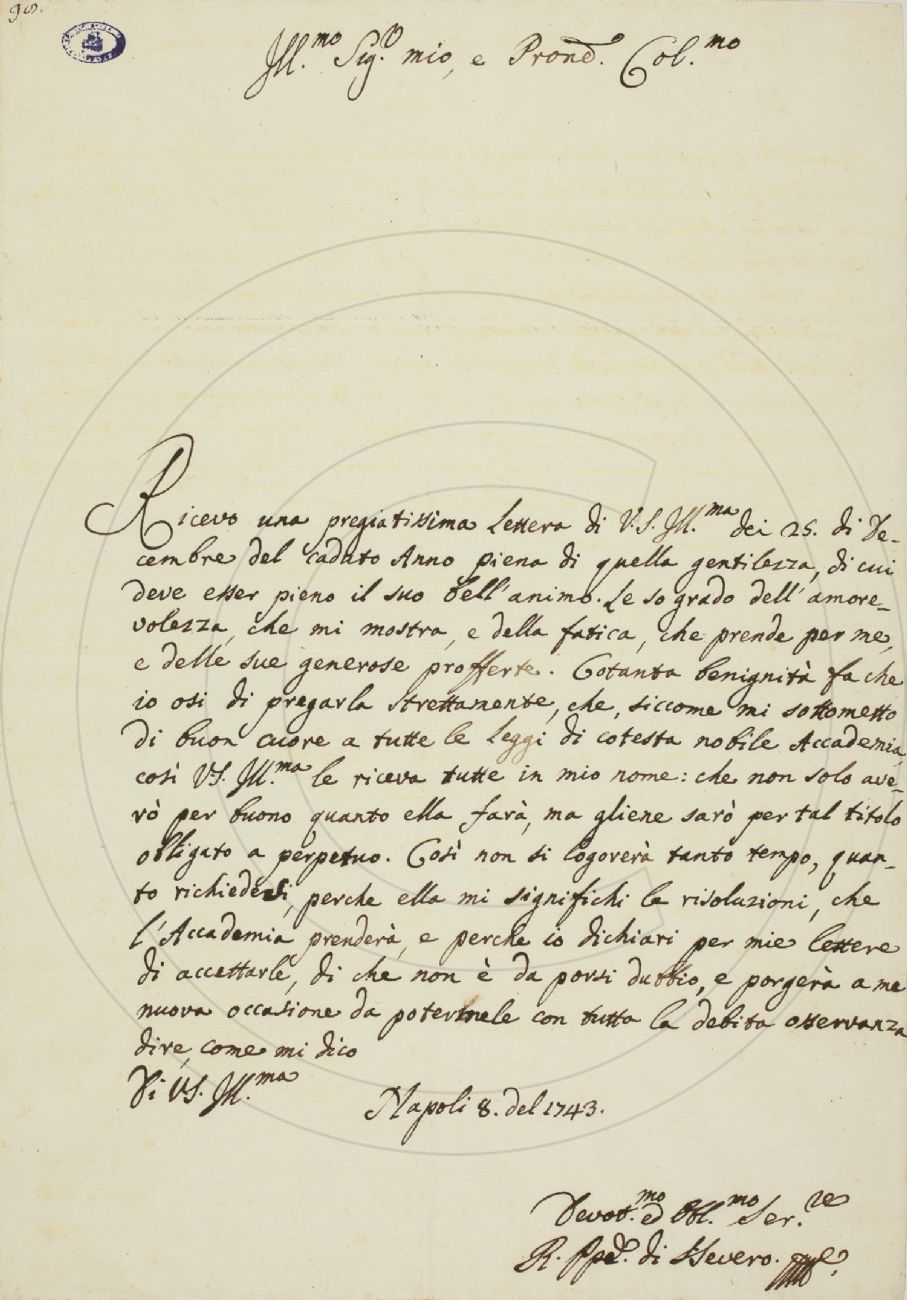 98.
Ill.mo Sig.r mio, e Pron.e Col.mo
Ricevo una pregiatissima Lettera di V.S. Ill.ma dei 25. di De-
cembre del caduto Anno piena di quella gentilezza, di cui
deve esser pieno il suo bell'animo. Le so grado dell'amore-
volezza, che mi mostra, e della fatica, che prende per me,
e delle sue generose profferte. Cotanta benignità fa che
io osi di pregarla strettamente, che, siccome mi sottometto
di buon cuore a tutte le Leggi di cotesta nobile Accademia,
così VS. Ill.ma le riceva tutte in mio nome: che non solo ave-
rò per buono quanto ella farà, ma gliene sarò per tal titolo
obligato a perpetuo. Così non si logorerà tanto tempo, quan-
to richiedesi, perche ella mi significhi le risoluzioni, che
l'Accademia prenderà, e perche io dichiari per mie lettere
di accettarle, di che non è da porsi dubbio, e porgerà a me
nuova occasione da potermele con tutta la debita osservanza
dire, come mi dico
Di VS. Ill.ma
Napoli 8. del 1743.
Devot.mo ed Obl.mo Ser.re
R. Ppe. di SSevero.